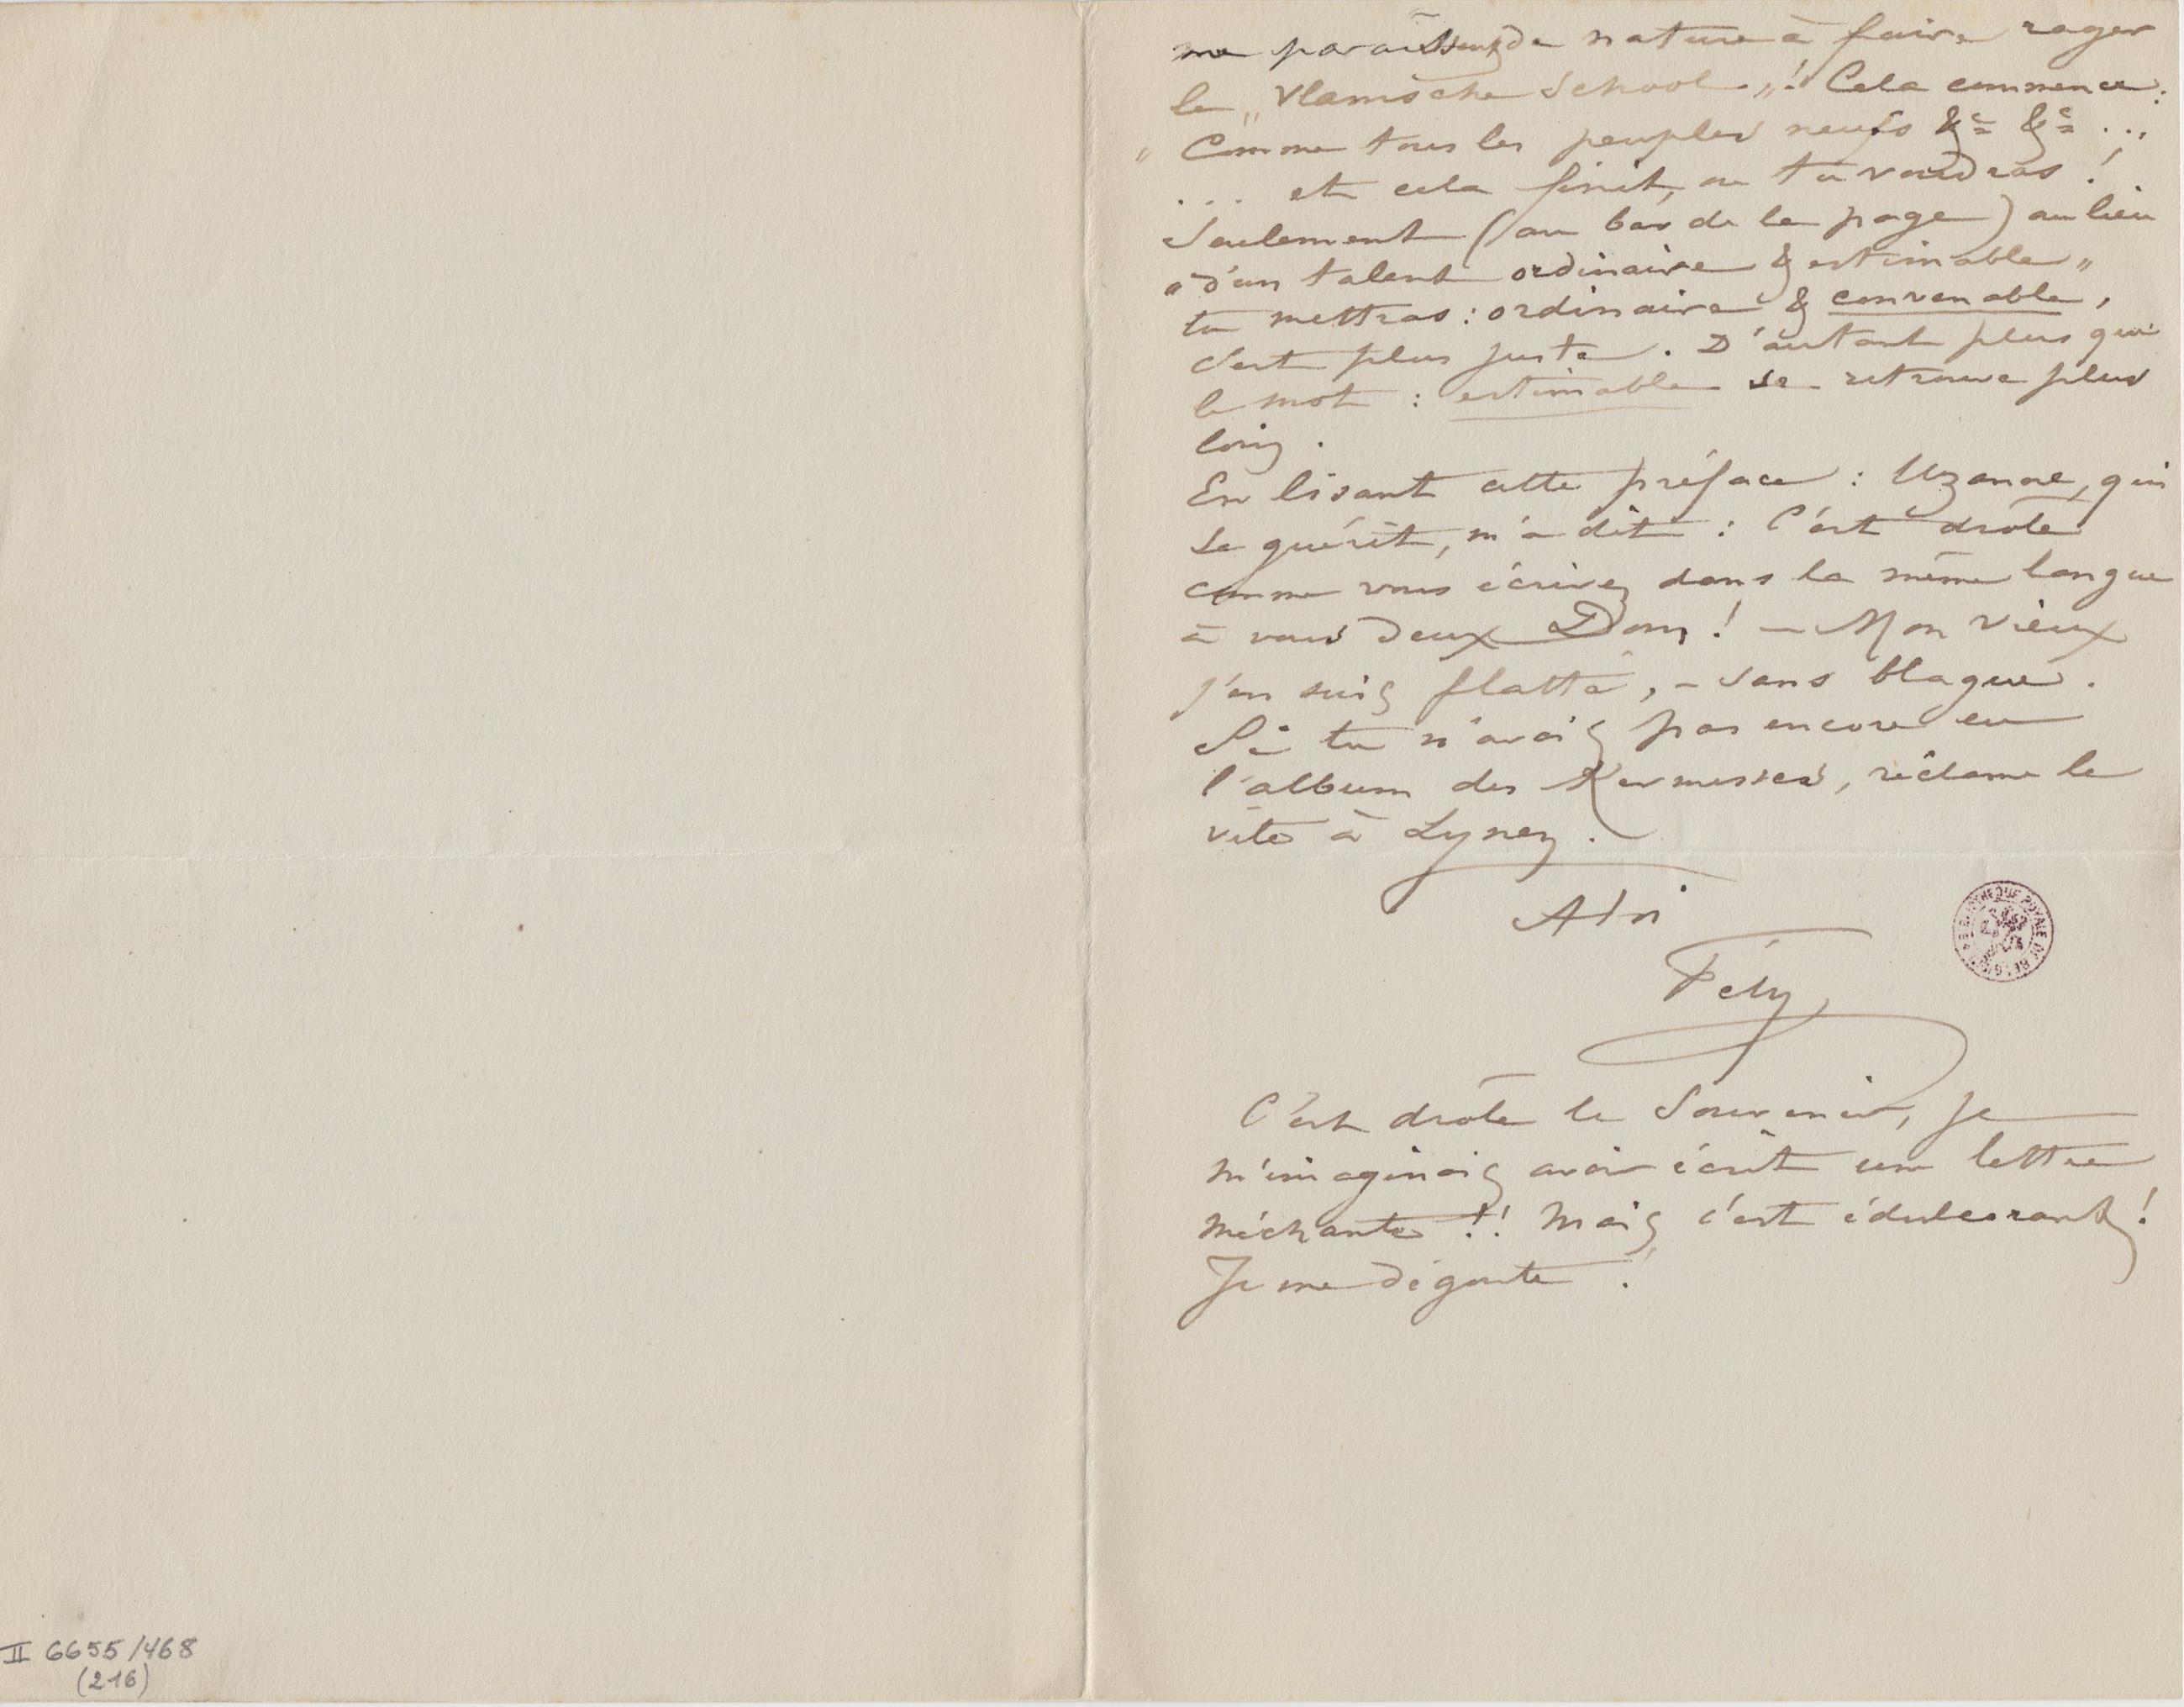 me paraissent de nature à faire rager
le „Vlamsche School„! Cela commence:
" Comme tous les peuples neufs &c &c ...
... et cela finit, ou tu voudras !
Seulement (au bas de la page) au lieu
"d'un talent ordinaire & estimable„
tu mettras : ordinaire & convenable,
c'est plus juste. D'autant plus que
le mot : estimable se retrouve plus
loin.
En lisant cette préface : Uzanne, qui
se guérit, m'a dit : C'est drôle
comme vous écrivez dans la même langue
à vous deux Dom ! – Mon vieux
j'en suis flatté, – sans blague.
Si tu n'avais pas encore eu
l'album des Kermesses, réclame le
vite à Lynen.
A toi
Fély
C'est drôle le Souvenir, je
m'imaginais avoir écrit une lettre
méchante !! Mais c'est édulcorant !
Je me dégoute.
BIBLIOTHEQUE ROYALE DE BELGIQUE
II 6655/468
(216)